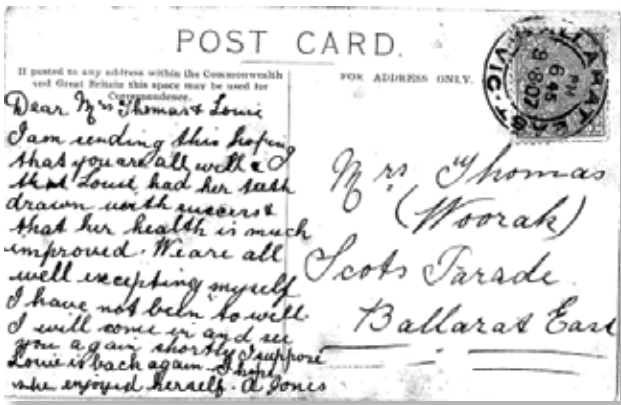 POST CARD.
If posted to any address within the Commonwealth
and Great Britain this space may be used for
Correspondence.
FOR ADDRESS ONLY.
BALLARAT EAST. VIC
6 45
PM
9.8.07
Dear Mrs Thomas & Louie
I am sending this hoping
that you are all well & I
Louie had her teeth
drawn with success &
that her health is much
improved. We are all
well excepting myself
I have not been to well
I will come in and see
you again shortly I suppose
Louie is back again I hope
she enjoyed herself. A Jones
Mrs Thomas
(Woorak)
Scots Parade
Ballarat East